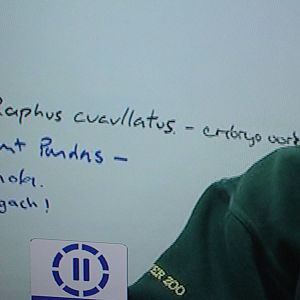 Raphus cuavllatus. - embryo work
nt Pandas -
gach!
ER ZOO